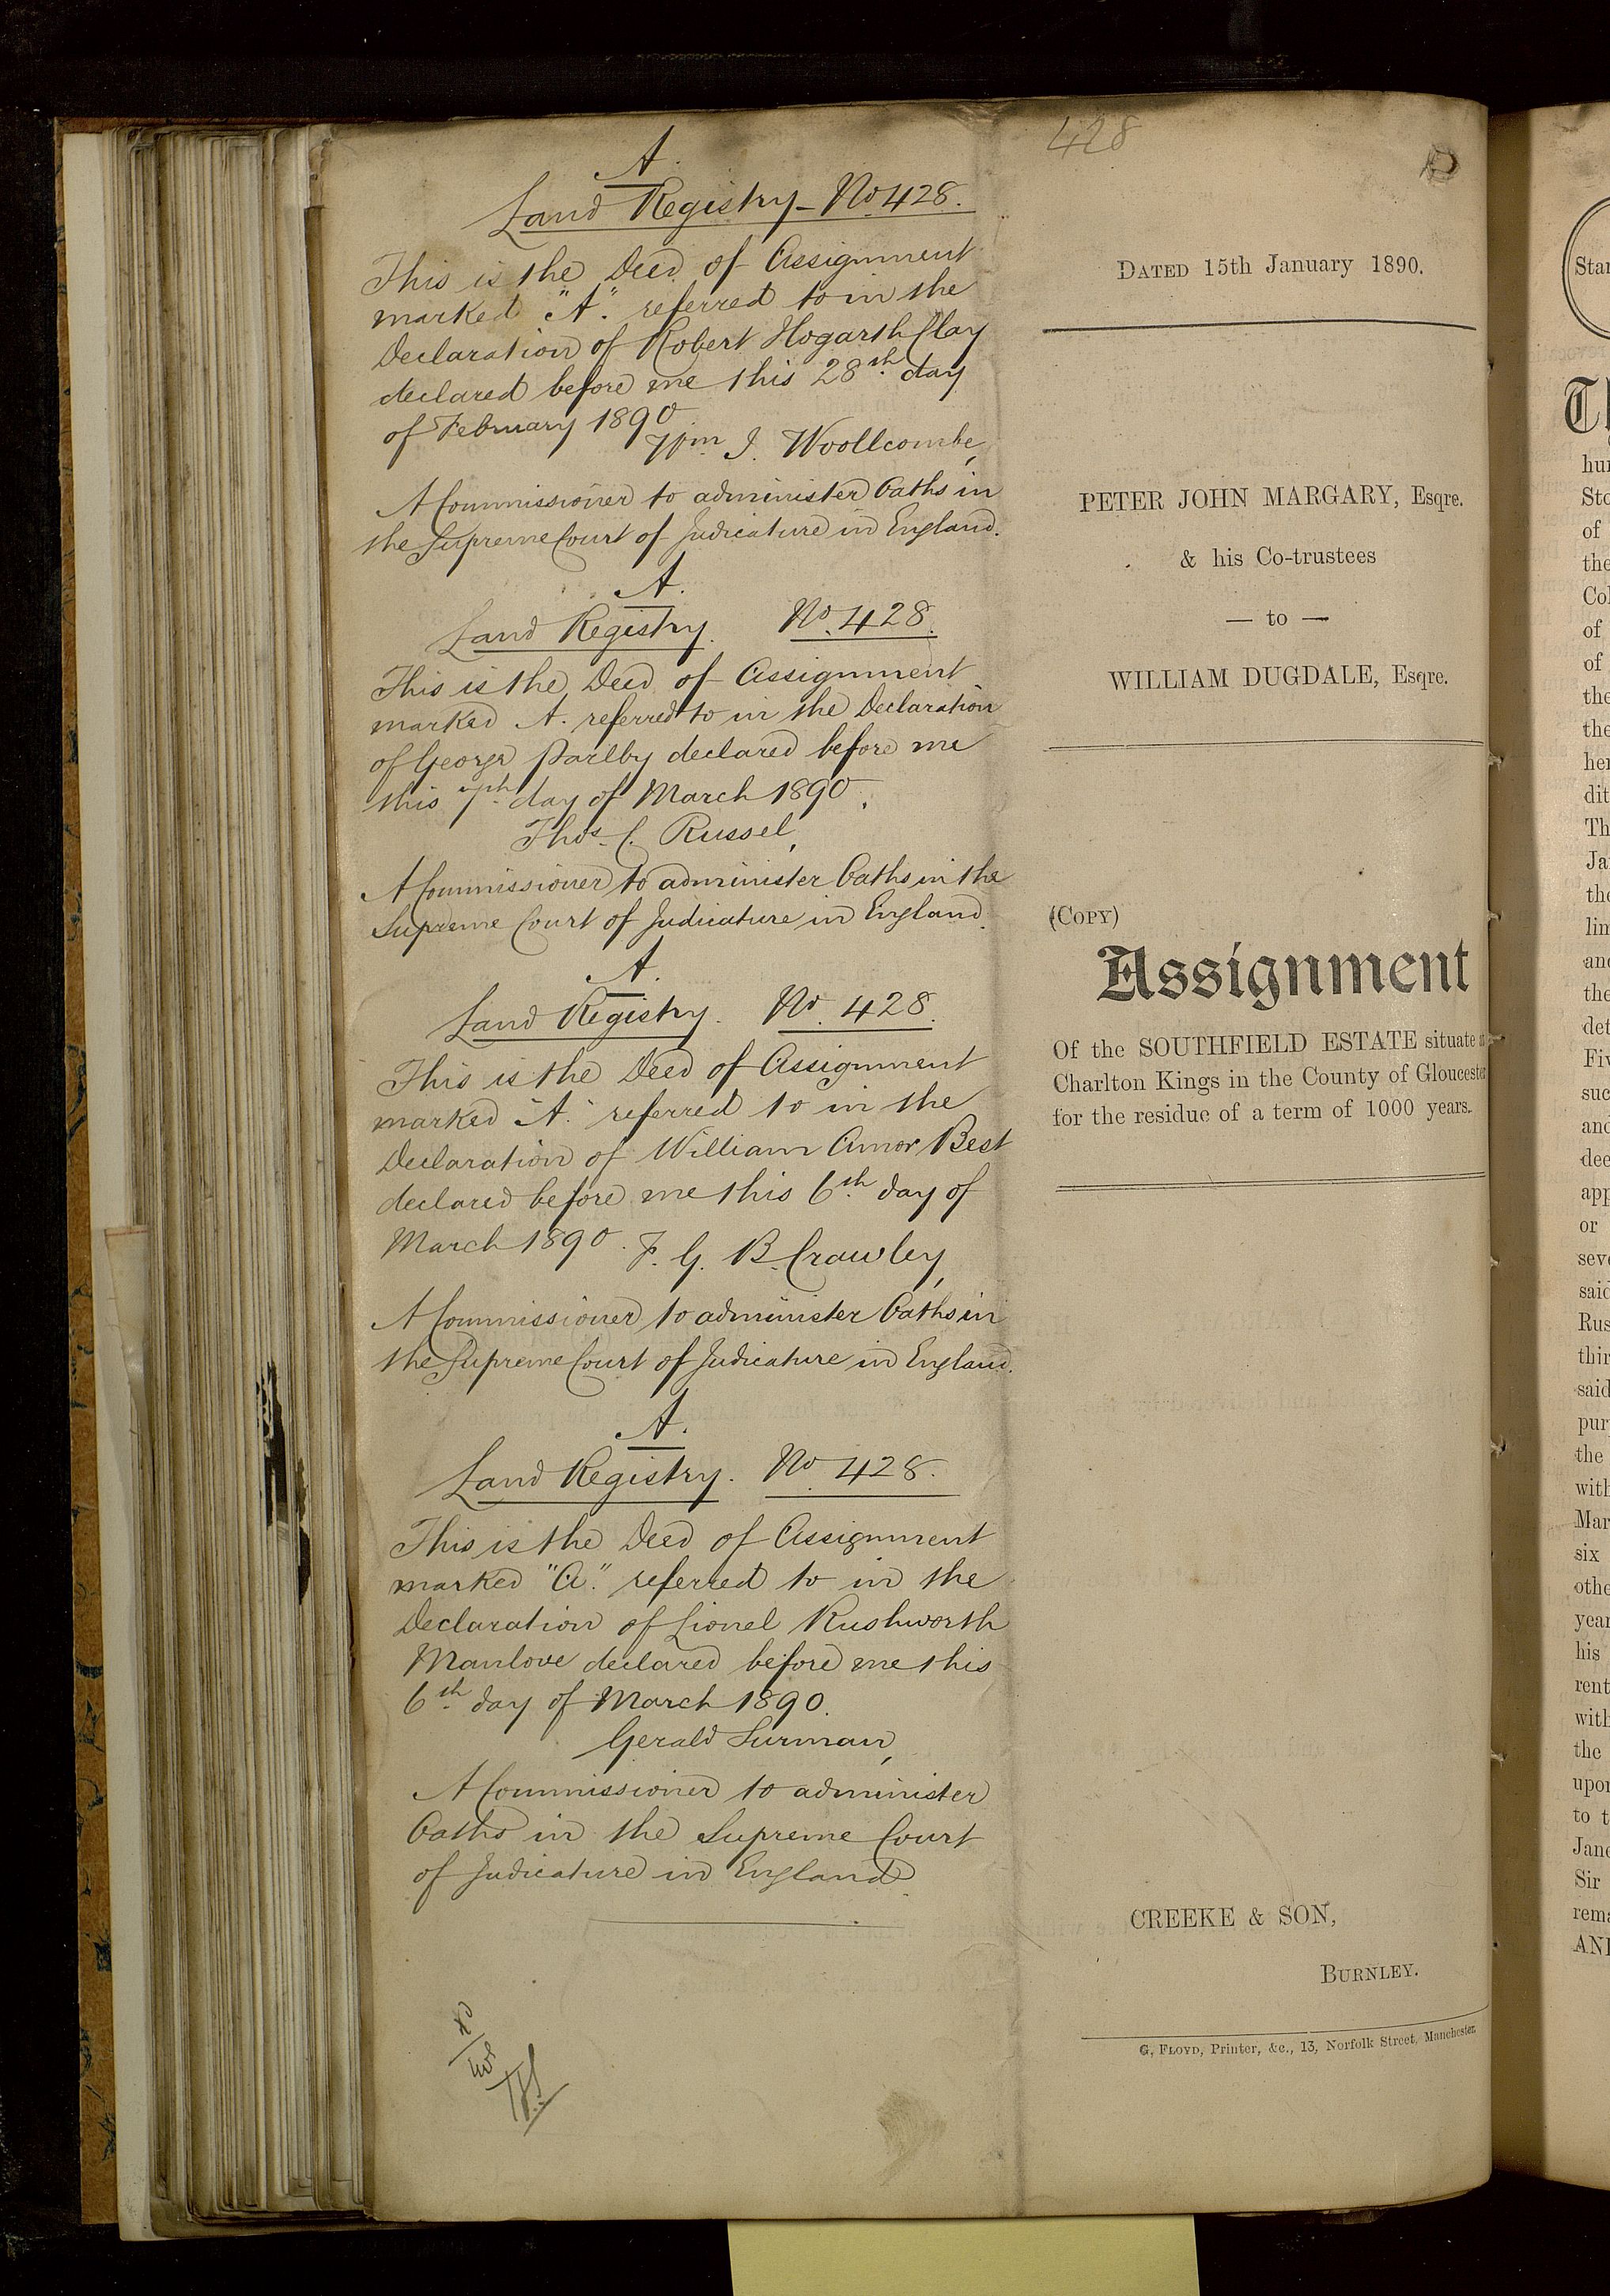 A.
Land Registry – No 428.
This is the Deed of Assignment
marked "A." referred to in the
Declaration of Robert Hogarth Clay
declared before me this 28th day
of February 1890
Wm J. Woollcombe,
A Commissioner to administer Oaths in
the Supreme Court of Judicature in England.
A.
Land Registry. No. 428.
This is the Deed of Assignment
marked A. referred to in the Declaration
of George Parlby declared before me
this 7th day of March 1890.
Thos. C. Russel,
A Commissioner to administer Oaths in the
Supreme Court of Judicature in England.
A.
Land Registry. No. 428.
This is the Deed of Assignment
marked "A." referred to in the
Declaration of William Amor Best
declared before me this 6th day of
March 1890. F. G. B. Crawley,
A Commissioner to administer Oaths in
the Supreme Court of Judicature in England.
A.
Land Registry. No. 428.
This is the Deed of Assignment
marked "A." referred to in the
Declaration of Lionel Rushworth
Manlove declared before me this
6th day of March 1890.
Gerald Surman,
A Commissioner to administer
Oaths in the Supreme Court
of Judicature in England.
428
DATED 15th January 1890.
PETER JOHN MARGARY, Esqre.
& his Co-trustees
— to —
WILLIAM DUGDALE, Esqre.
(COPY)
Assignment
Of the SOUTHFIELD ESTATE situate
Charlton Kings in the County of Gloucester
for the residue of a term of 1000 years.
CREEKE & SON,
BURNLEY.
G. FLOYD, Printer, &c., 13, Norfolk Street, Manchester.